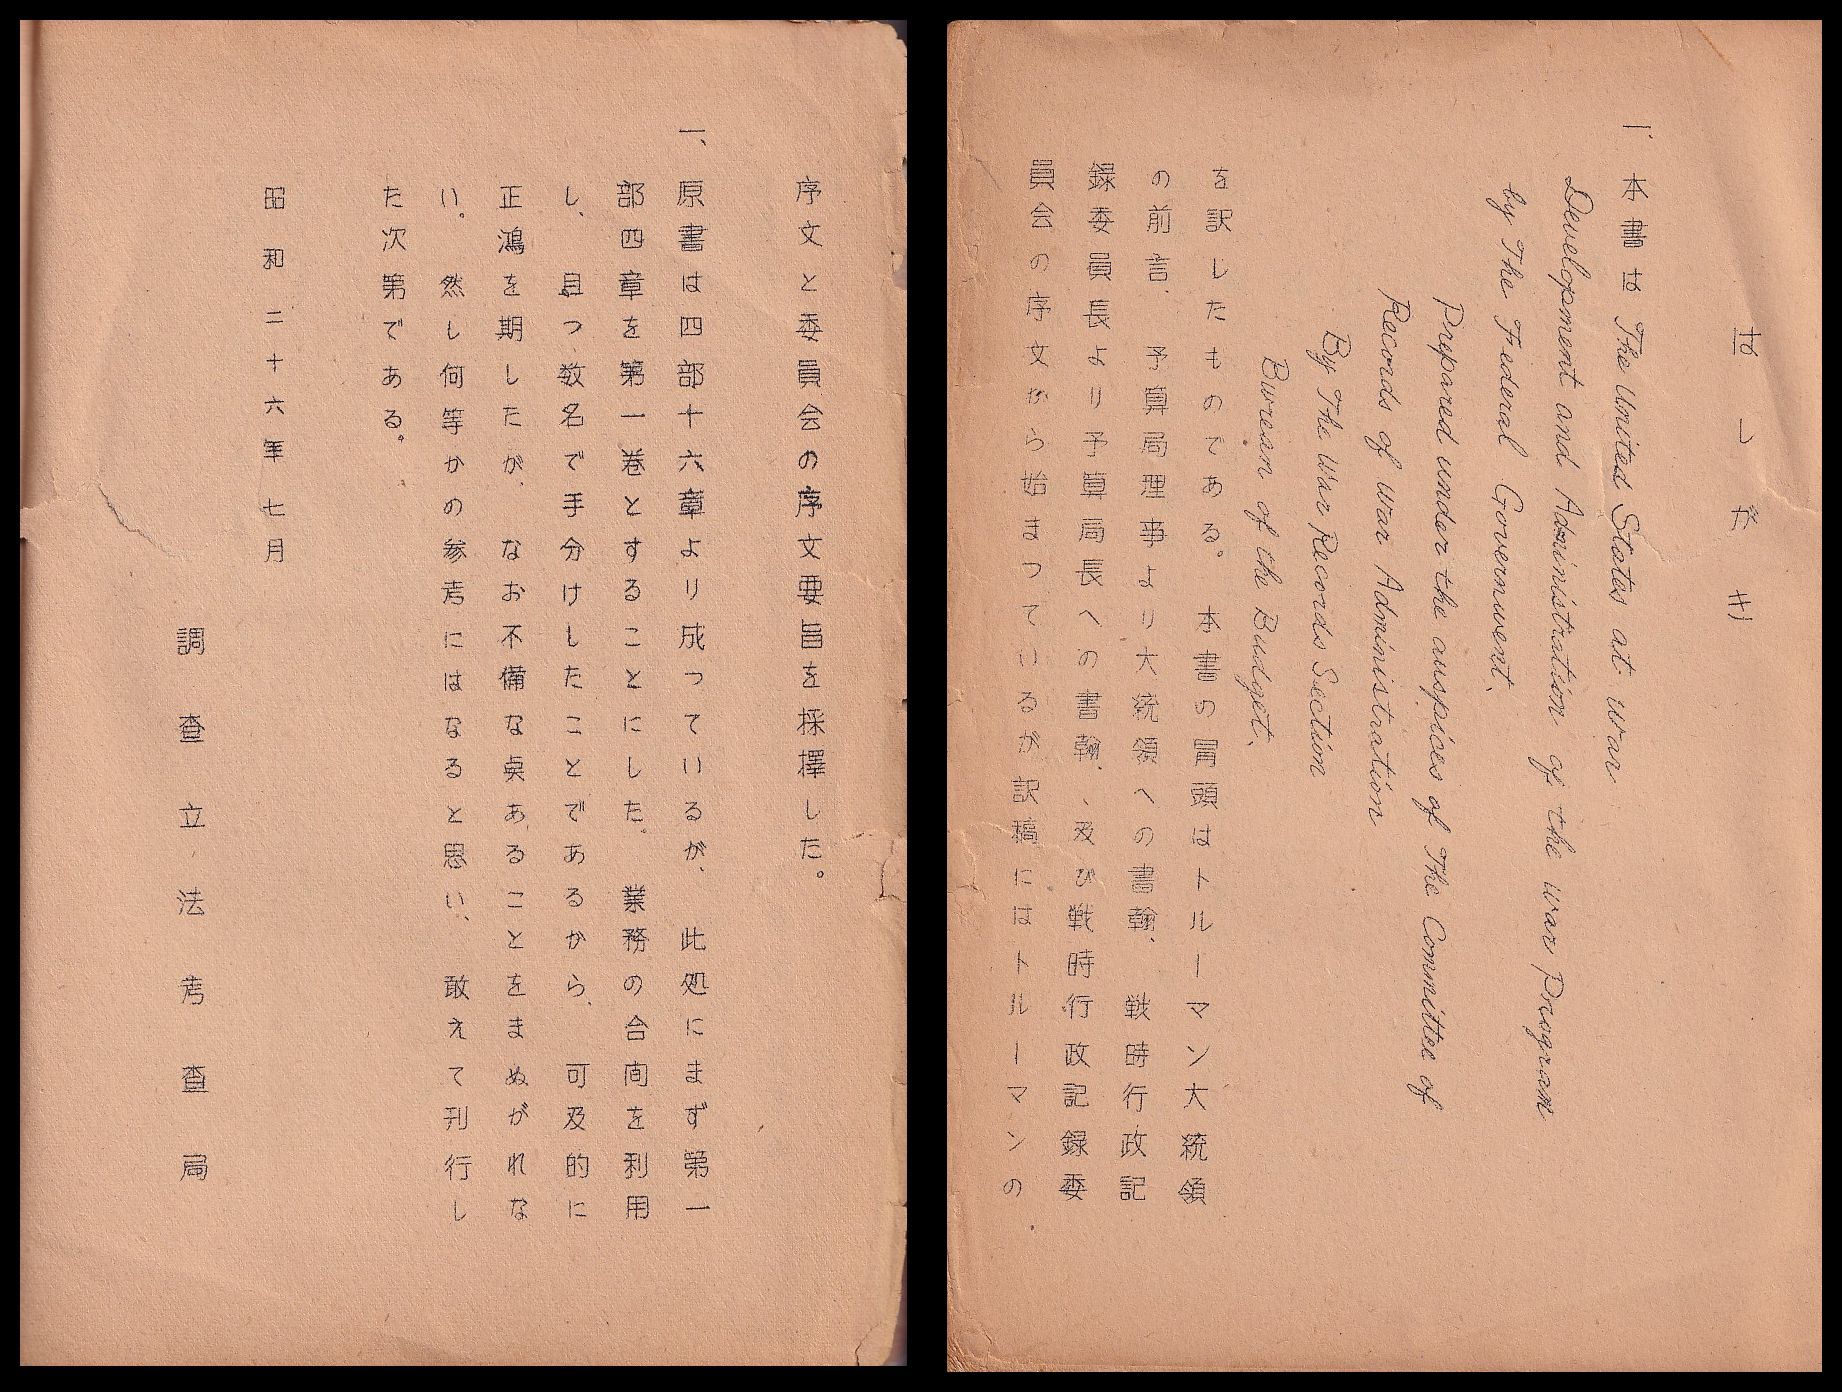 はしがき
一、本書は The United States at war
Development and Administration of the war Program
by The Federal Government.
Prepared under the auspices of The Committee of
Records of war Administration
By The War Records Section
Bureau of the Budget.
を訳したものである。本書の冒頭はトルーマン大統領
の前言、予算局理事より大統領への書翰、戦時行政記
録委員長より予算局長への書翰、、及び戦時行政記録委
員会の序文から始まつているが訳稿にはトルーマンの
序文と委員会の序文要旨を採擇した。
一、原書は四部十六章より成つているが、此処にまず第一
部四章を第一巻とすることにした。業務の合間を利用
し、且つ数名で手分けしたことであるから、可及的に
正鴻を期したが、なお不備な点あることをまぬがれな
い。然し何等かの参考にはなると思い、敢えて刊行し
た次第である。
昭和二十六年七月
調査立法考査局